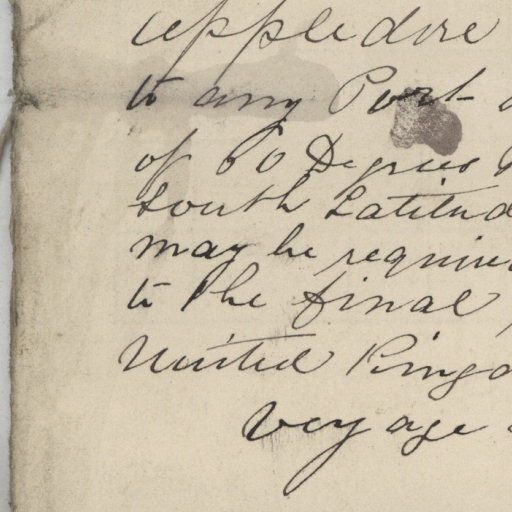 Appledore
to any Port
of 60 Degrees
South Latitud
may be requir
to the final
United Kingd
voyage